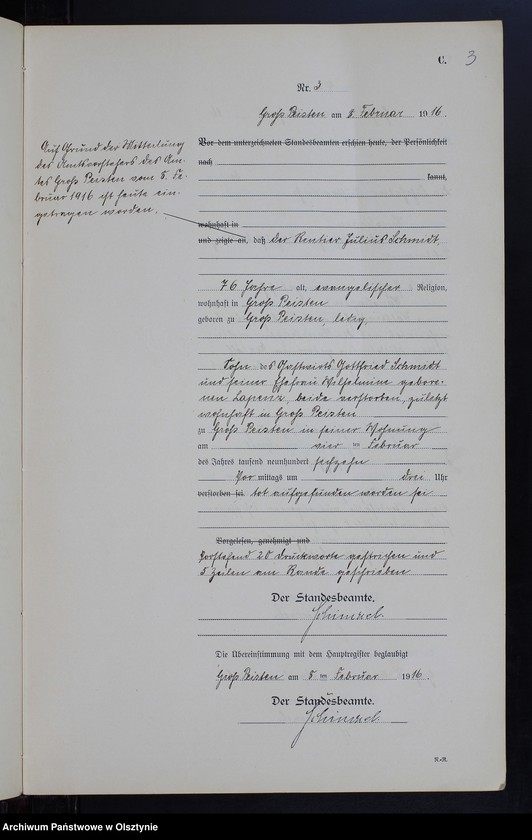 C. 3
Nr. 3
Groß Peisten am 8. Februar 1916.
Auf Grund der Mitteilung
des Amtsvorstehers des Am-
tes Groß Peisten vom 8. Fe-
bruar 1916 ist heute ein-
getragen worden.
Vor dem unterzeichneten Standesbeamten erschien heute, der Persönlichkeit
nach
kannt,
wohnhaft in
und zeigte an, daß der Rentier Julius Schmidt,
76 Jahre alt, evangelischer Religion,
wohnhaft in Groß Peisten
geboren zu Groß Peisten, ledig,
Sohn des Gastwirts Gottfried Schmidt
und seiner Ehefrau Wilhelmine gebore-
nen Lapenz, beide verstorben, zuletzt
wohnhaft in Groß Peisten
zu Groß Peisten in seiner Wohnung
am vier ten Februar
des Jahres tausend neunhundert sechzehn
Vor mittags um drei Uhr
verstorben sei. tot aufgefunden worden sei
Vorgelesen, genehmigt und
Vorstehend 20 Druckworte gestrichen und
5 Zeilen am Rande geschrieben
Der Standesbeamte.
Schimzek
Die Übereinstimmung mit dem Hauptregister beglaubigt
Groß Peisten am 8 ten Februar 1916.
Der Standesbeamte.
Schimzek
Archiwum Państwowe w Olsztynie